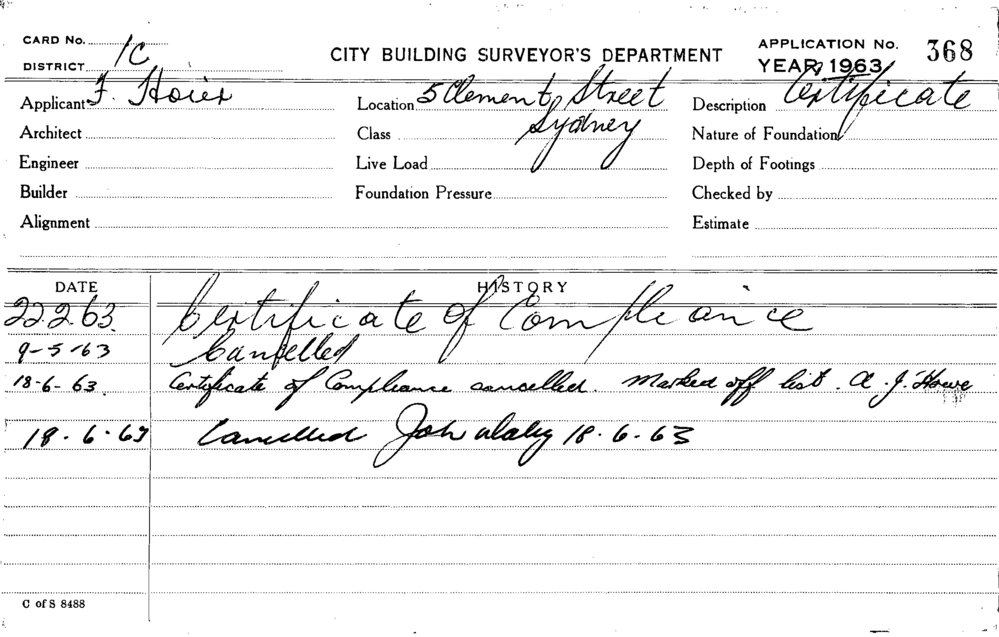 CARD No.
DISTRICT 1C
CITY BUILDING SURVEYOR'S DEPARTMENT
APPLICATION No. 368
YEAR, 1963
Applicant F. Hoier
Location 5 Clement Street
Sydney
Description Certificate
Architect
Class
Nature of Foundation
Engineer
Live Load
Depth of Footings
Builder
Foundation Pressure
Checked by
Alignment
Estimate
DATE HISTORY
22.2.63. Certificate of Compliance
9-5-63 Cancelled
18-6-63. Certificate of Compliance cancelled. Marked off list. A. J. Howe
18.6.63 Cancelled John 18.6.63
C of S 8488